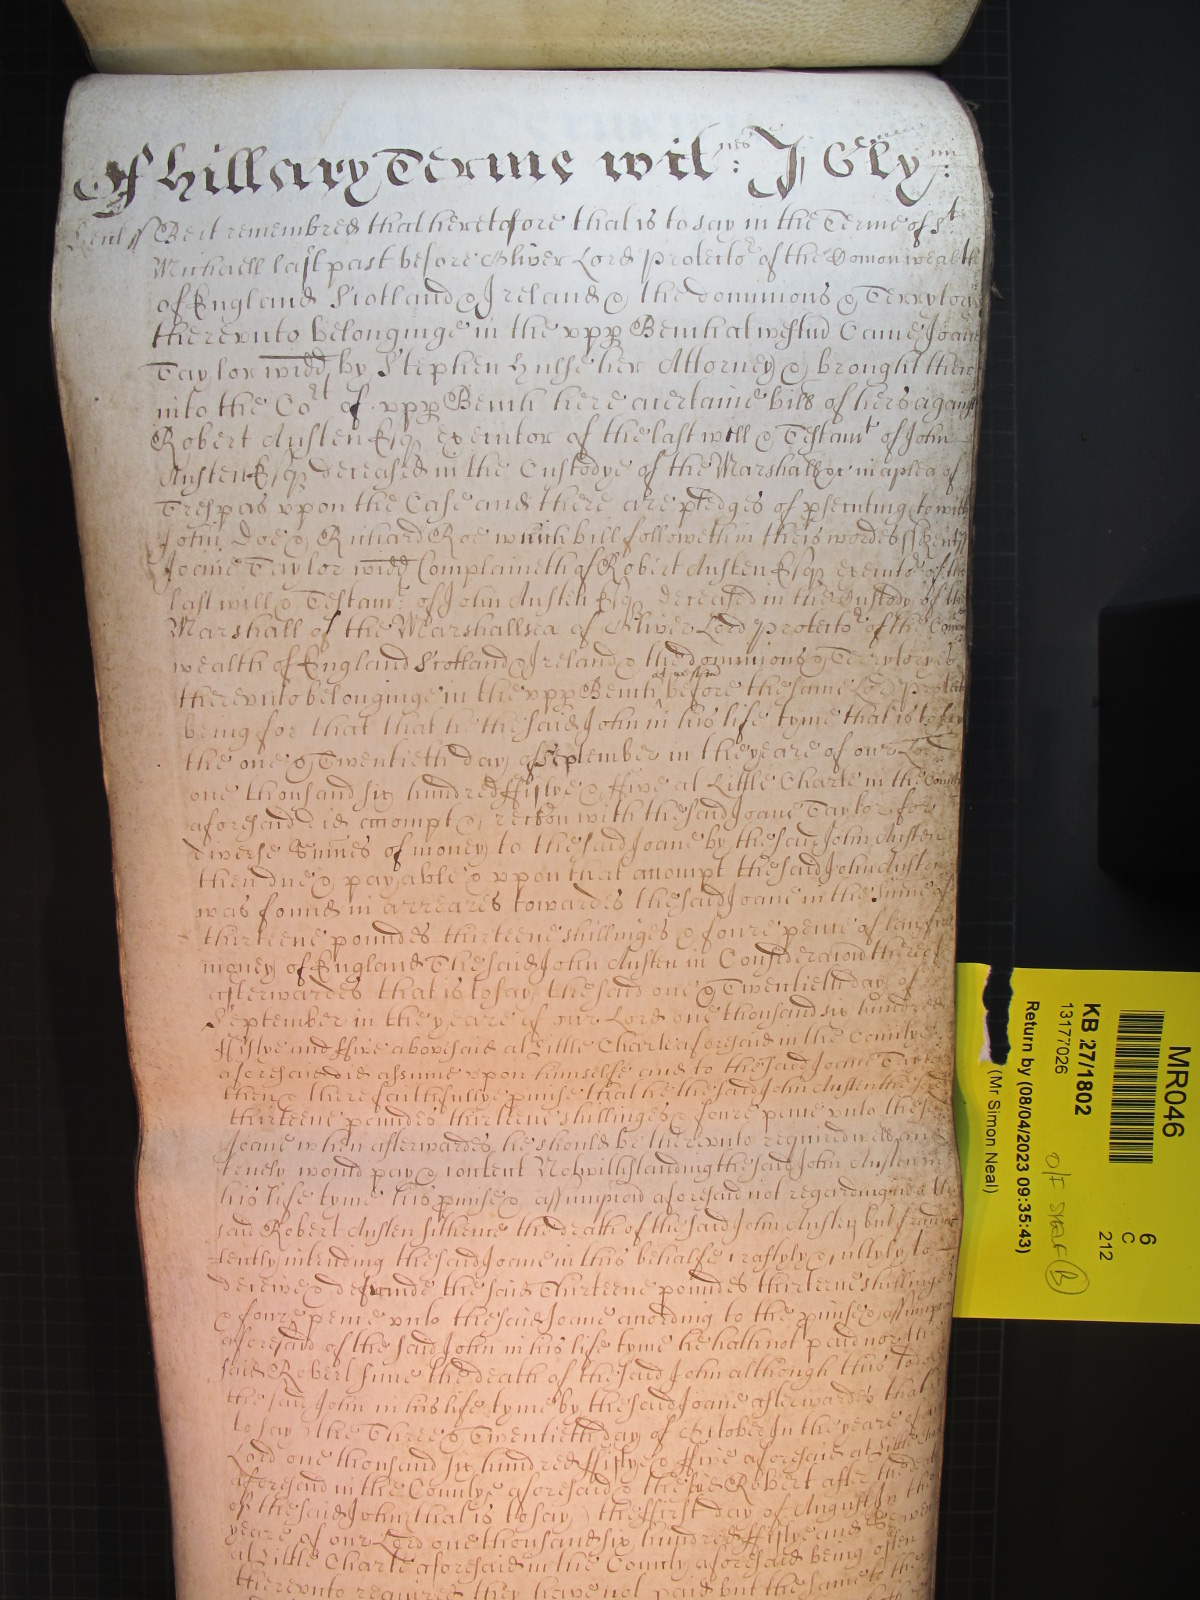 Of Hillary Terme wit:nes J Glyn:
Kent ss Be it remembred that heretofore that is to say in the Terme of St
Michaell last past before Oliver Lord Protector of the Comonwealth
of England Scotland & Ireland & the dominions & Terrytoryes
therevnto belonginge in the vpp Bench at westm Came Joane
Taylor widd by Stephen Hulse her Attorney & brought then
into the Cort of vpp Bench here a certaine bill of hers against
Robert Austen Esq executor of the last will & Testamt of John
Austen Esq deceased in the Custodye of the Marshall &c in a plea of
Trespas vpon the Case and there are pledges of psecuting to wit
John Doe & Richard Roe which bill followeth in theis wordes ss Kent ss
Joane Taylor widd Complaineth of Robert Austen Esq executor of the
last will & Testamt of John Austen Esq deceased in the Custody of the
Marshall of the Marshallsea of Oliver Lord Protector of the Comon
wealth of England Scotland & Ireland & the dominions & Terrytoryes
at westm
therevnto belonginge in the vpp Bench before the same Lord Protector
being for that that he the said John in his life tyme that is to say
the one & Twentieth day of September in the yeare of our Lord
one thousand six hundred ffiftye & ffive at Little Charte in the County
aforesaid did accompt & reckon with the said Joane Taylor for
diverse Summes of money to the said Joane by the said John Austen
then due & payable & vpon that accompt the said John Austen
was found in arreares towardes the said Joane in the summe of
thirteene poundes thirteene shillinges & foure pence of lawfull
money of England The said John Austen in Consideracion thereof
afterwardes that is to say the said one & Twentieth day of
September in the yeare of our Lord one thousand six hundred
ffiftye and ffive abovesaid at Little Charte aforesaid in the County
aforesaid did assume vpon himselfe and to the said Joane Taylor
then & there faithfullye pmise that he the said John Austen the said
thirteene poundes thirteene shillinges & foure pence vnto the said
Joane when afterwardes he should be therevnto required well and
truely would pay & content Notwithstanding the said John Austen in
his life tyme his pmise & assumpcion aforesaid not regarding nor the
said Robert Austen sithence the death of the said John Austen but fraudu
lently intending the said Joane in this behalfe craftyly & subtylly to
deceive & defraude the said Thirteene poundes thirteene shillinges
& foure pence vnto the said Joane according to the pmise & assumpcion
aforesaid of the said John in his life tyme he hath not paid nor the
said Robert since the death of the said John although thus to doe
the said John in his life tyme by the said Joane afterwardes that is
to say the Three & Twentieth day of October In the yeare of our
Lord one thousand six hundred ffiftye & ffive aforesaid at Little Charte
aforesaid in the Countye aforesaid & the said Robert after the death
of the said John (that is to say) the ffirst day of August In the
yeare of our Lord one thousand six hundred ffiftye and
at Little Charte aforesaid in the County aforesaid being often
therevnto required they have not paid but the same to
MR046
6
C
212
KB 27/1802
13177026
Return by (08/04/2023 09:35:43)
(Mr Simon Neal)